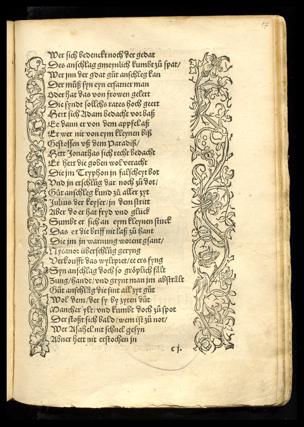 Wer sich bedenckt noch der gedat
Des anschlag gmeynlich kumbt zů spat/
Wer jnn der gdat gůt anschleg kan
Der můß syn eyn erfarner man
Oder hat das von frowen gelert
Die syndt sollchs rates hoch geert
Hett sich Adam bedacht vor baß
Ee dann er von dem appfel aß
Er wer nit von eym kleynen biß
Gestossen vß dem Paradiß/
Hett Jonathas sich recht bedacht
Er hett die goben wol veracht
Die jm Tryphon jn falscheyt bot
Vnd jn erschlůg dar noch zů dot/
Gůt anschleg kund zů aller zyt
Julius der keyser/ jn dem stritt
Aber do er hat fryd vnd glück
Sumbt er sich an eym kleynen stuck
Das er die brieff nit laß zů hant
Die jm jn warnung worent gsant/
Nycanor überschlůg gering
Verkoufft das wyltpret/ee ers fyng
Syn anschlag doch so gröplich fält
Zung/handt/vnd grynt man jm abstrält
Gůt anschläg die sint all zyt gůt
Wol dem/der sy by zyten důt
Mancher ylt/vnd kumbt doch zů spot
Der stoßt sich bald/wem ist zů not/
Wer Asahel nit schnel gesyn
Abner hett nit erstochen jn
c j.